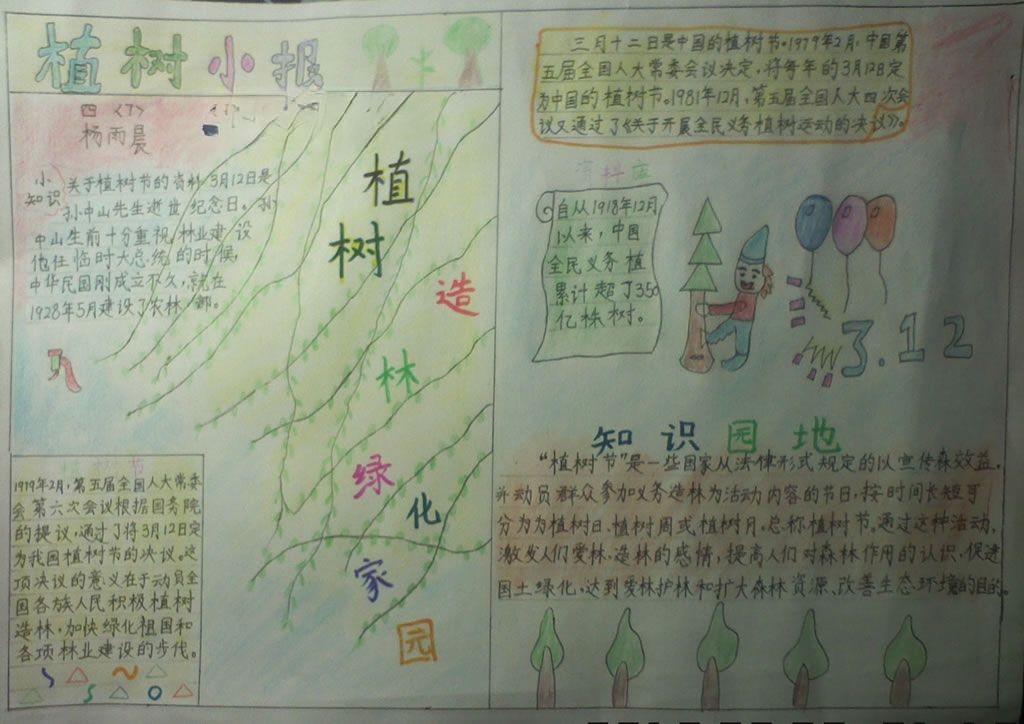 植树小报
四〈7〉
杨雨晨
小知识
关于植树节的资料 3月12日是
孙中山先生逝世纪念日。孙
中山生前十分重视林业建设
他任临时大总统的时候,
中华民国刚成立不久,就在
1928年5月建设了农林部。
植树
造林
绿化
家园
1979年2月,第五届全国人大常委
会第六次会议根据国务院
的提议,通过了将3月12日定
为我国植树节的决议。这
项决议的意义在于动员全
国各族人民积极植树
造林,加快绿化祖国和
各项林业建设的步伐。
三月十二日是中国的植树节。1979年2月,中国第
五届全国人大常委会议决定,将每年的3月12日定
为中国的植树节。1981年12月,第五届全国人大四次会
议又通过了《关于开展全民义务植树运动的决议》。
资料库
自从1918年12月
以来,中国
全民义务植
累计超了350
亿株树。
3.12
知识园地
“植树节”是一些国家从法律形式规定的以宣传森效益,
并动员群众参加义务造林为活动内容的节日,按时间长短可
分为为植树日、植树周或植树月,总称植树节。通过这种活动,
激发人们爱林、造林的感情,提高人们对森林作用的认识,促进
国土绿化,达到爱林护林和扩大森林资源、改善生态环境的目的。